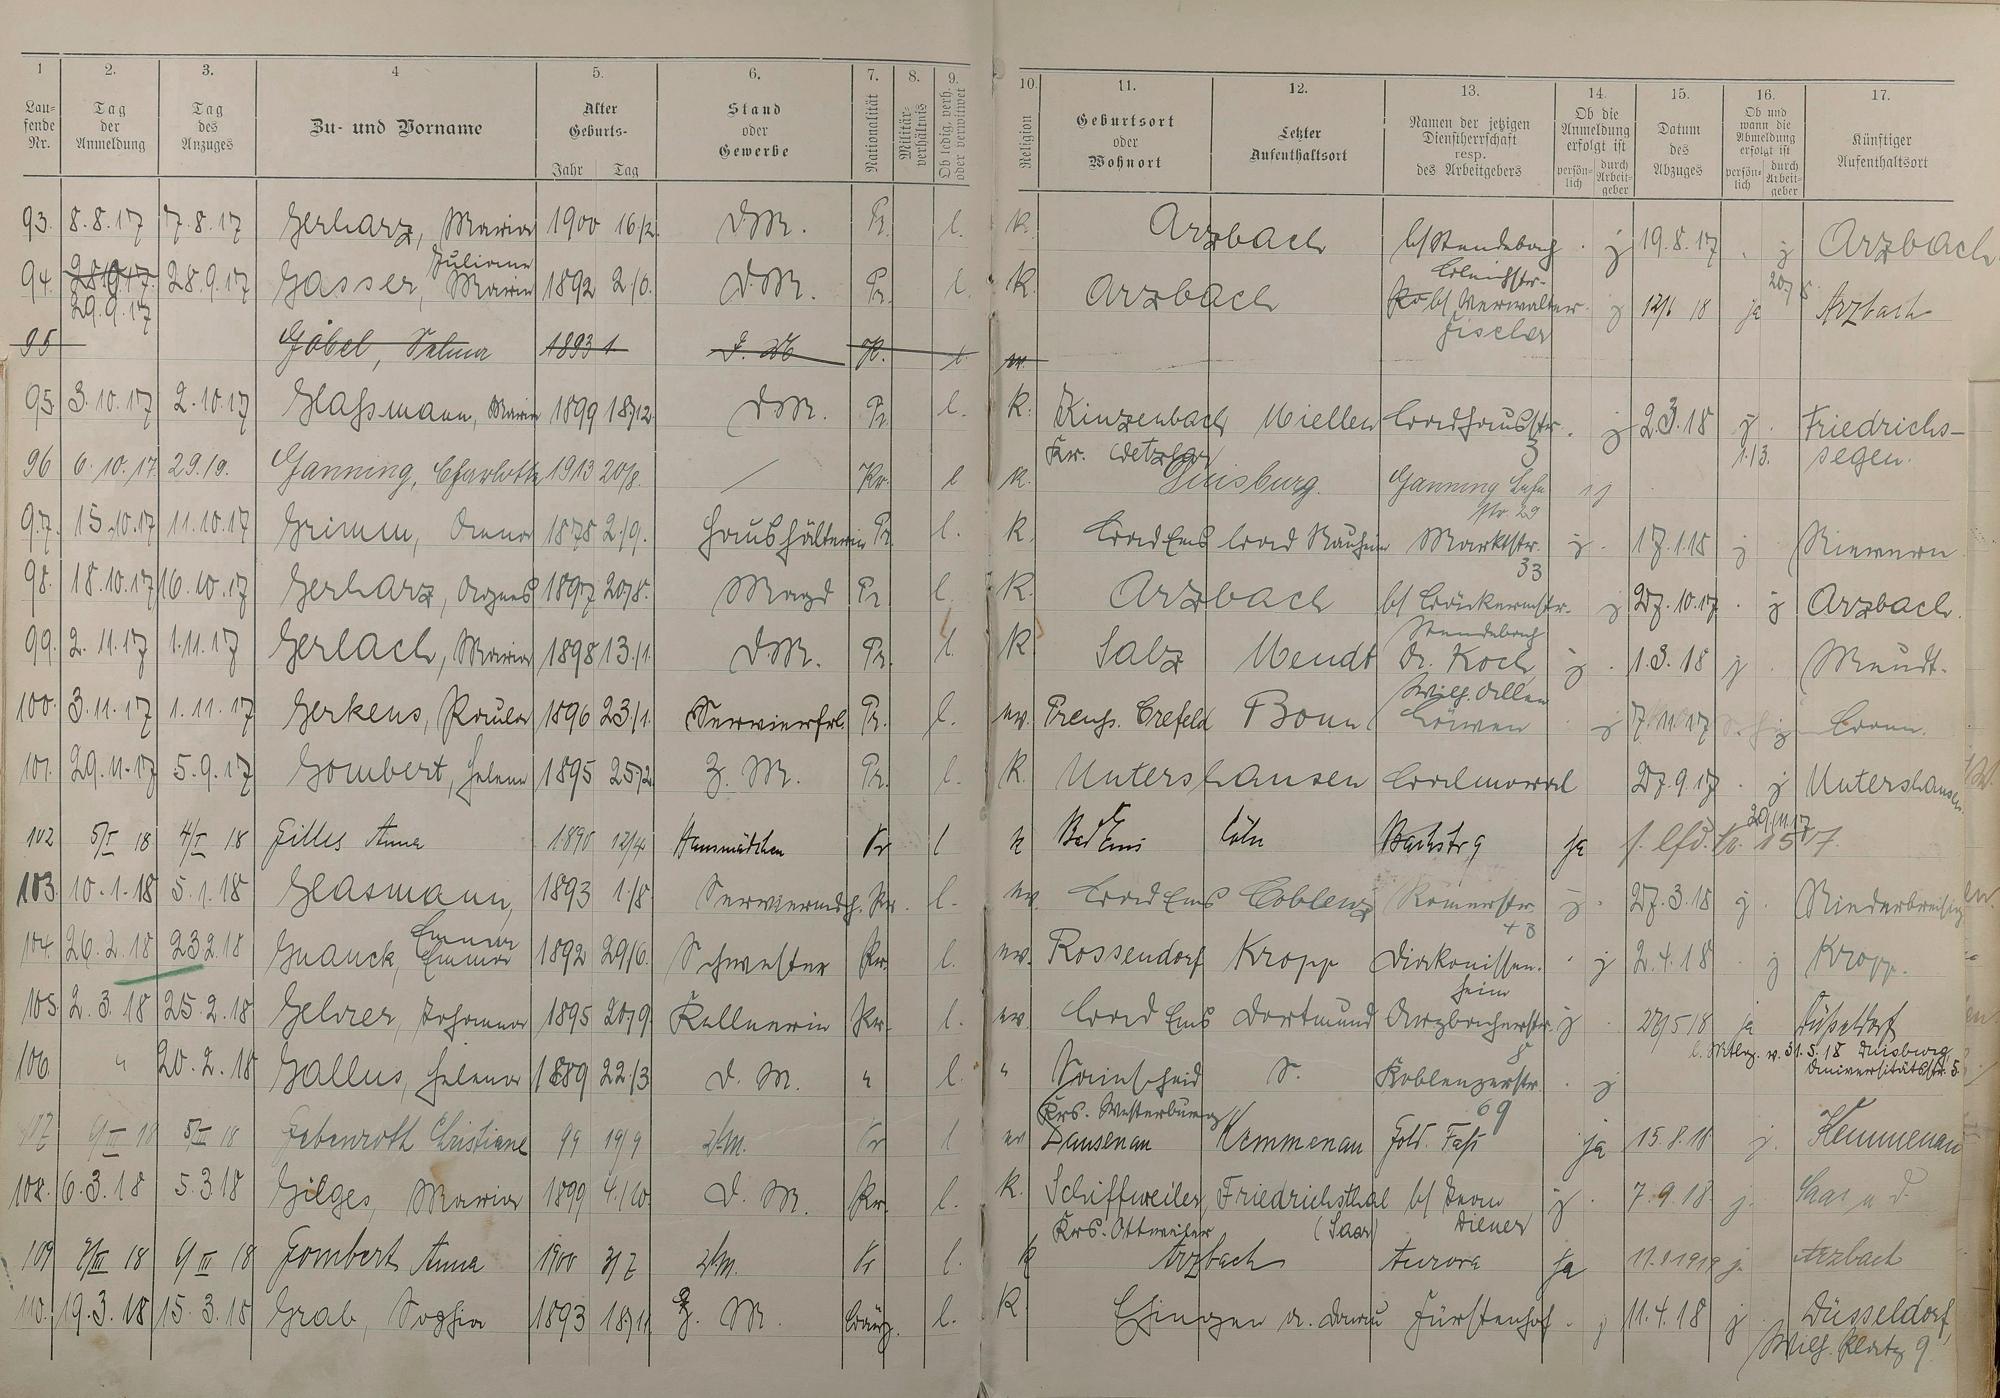 1 2. 3. 4 5. 6. 7. 8. 9. 10. 11. 12. 13. 14. 15. 16. 17.
Laufende Nr. Tag der Anmeldung Tag des Anzuges Zu- und Vorname Alter Geburts- Jahr Tag Stand oder Gewerbe Nationalität Militärverhältnis Ob ledig, verh. oder verwitwet Religion Geburtsort oder Wohnort Letzter Aufenthaltsort Namen der jetzigen Dienstherrschaft resp. des Arbeitgebers Ob die Anmeldung erfolgt ist persönlich durch Arbeitgeber Datum des Abzuges Ob und wann die Abmeldung erfolgt ist persönlich durch Arbeitgeber Künftiger Aufenthaltsort
93. 8.8.17 7.8.17 Gerharz, Maria 1900 16/2. D.M. Pr. l. k. Arzbach j 19.8.17 . j Arzbach
Juliane
94. 28.9.17. 28.9.17 Gasser, Maria 1892 D.M. Pr. l. k. Arzbach Verwalter j 12/6 18 ja Arzbach
29.9.17 Fischer
95 Göbel, Selma 1893 1
95. 3.10.17 2.10.17 Glaßmann, Maria 1899 18/12. D.M. Pr. l. k. Kinzenbach Miellen Badhausstr. j 2.3.18 j. Friedrichs-
Kr. Wetzlar 3 1.13. segen.
96 6.10.17 29./9. Ganning, Charlotte 1913 20/8. / Pr. l k. Duisburg. Ganning Lahn j
str. 29
97. 15.10.17 11.10.17 Grimm, Anna 1878 2./9. Haushälterin Pr. l. k. Bad Ems Bad Nauheim Marktstr. j. 17.1.18 j Nievern
33
98. 18.10.17 16.10.17 Gerharz, Agnes 1897 20/8. Magd Pr l. k. Arzbach j 27.10.17 . j Arzbach.
99. 2.11.17 1.11.17 Gerlach, Maria 1898 13./1. D.M. Pr. l. k. Salz Meudt Dr. Koch j . 1.3.18 j . Meudt.
Wilh. Allee
100. 3.11.17 1.11.17 Gerkens, Paula 1896 23/1. Servierfrl. Pr. l. ev. Preuß. Crefeld Bonn Löwen j 7.11.17 j Bonn.
101. 29.11.17 5.9.17 Gombert, Helene 1895 25/2. Z. M. Pr. l. k. Untershausen 27.9.17 . j Untershausen
29/11.17
102 5/I 18 4/I 18 Gilles Anna 1890 12/4 Hausmädchen Pr l k Bad Ems Cöln Bachstr 9 ja s. lfd. No. 1507.
103. 10.1.18 5.1.18 Glasmann, 1893 1./8. Serviermdch. Pr. l. ev. Bad Ems Coblenz Römerstr. j. 27.3.18 j. Niederbreisig
Emma 48
104. 26.2.18 23.2.18 Gnanck, Emma 1892 29/6. Schwester Pr. l. ev. Rossendorf Kropp Diakonissen. j 2.4.18 . j Kropp.
heim
105. 2.3.18 25.2.18 Gelzer, Johanna 1895 20/9. Kellnerin Pr. l. ev. Bad Ems Dortmund Arzbacherstr. j 27/5 18 ja Düsseldorf
8 l. Mtlg. v. 31.5.18 Duisburg,
106. " 20.2.18 Gallus, Helena 1889 22./3 D. M. " l. " Sainscheid S. Koblenzerstr. . j Universitätsstr. 5.
Krs. Westerburg 69
107 6/III 18 5/III 18 Gebenroth Christiane 99 19/9 l ev Dausenau Kemmenau Gold. Faß ja 15.8.18 j. Kemmenau
108. 6.3.18 5.3.18 Gilges, Maria 1899 4./10. D. M. Pr. l. k. Schiffweiler, Friedrichsthal b/ Frau j. 7.9.18 j.
Krs. Ottweiler (Saar) Diener
109 7/III 18 6/III 18 Gombert Anna 1900 Pr l. k Arzbach Aurora ja j. Arzbach
110. 19.3.18 15.3.18 Grab, Sophia 1893 18/11. Z. M. l. k. Ehingen a. Donau Fürstenhof. j 11.4.18 j Düsseldorf,
Wilh. Platz 9